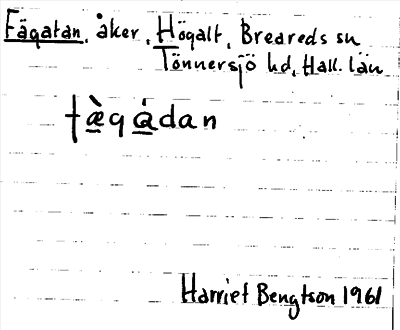 Fägatan, åker, Högalt, Breareds sn
Tönnersjö hd, Hall. län
fæ̀gádan
Harriet Bengtson 1961